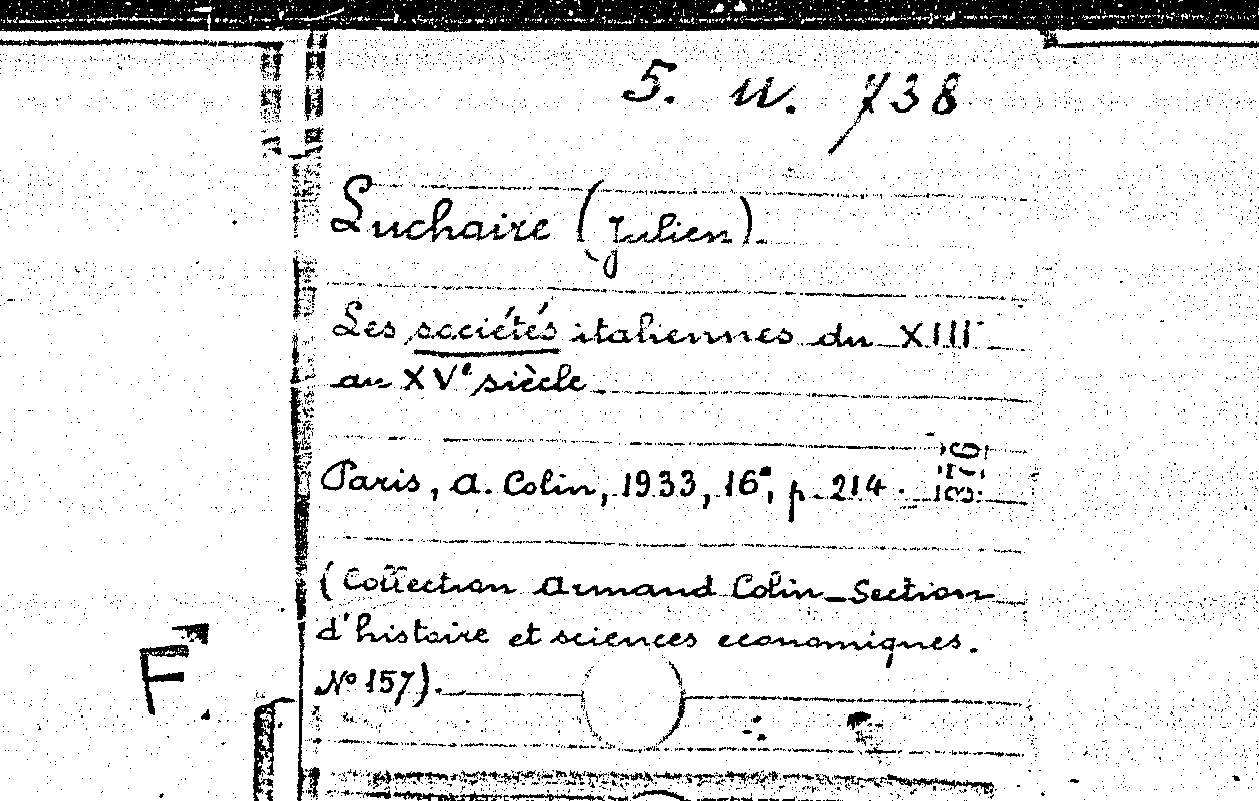 5. U. 738
Luchaire (Julien).
Les sociétés italiennes du XIII
au XVe siècle
Paris, A. Colin, 1933, 16°, p. 214.
(Collection Armand Colin_Section
d'histoire et sciences economiques.
N° 157).
F.